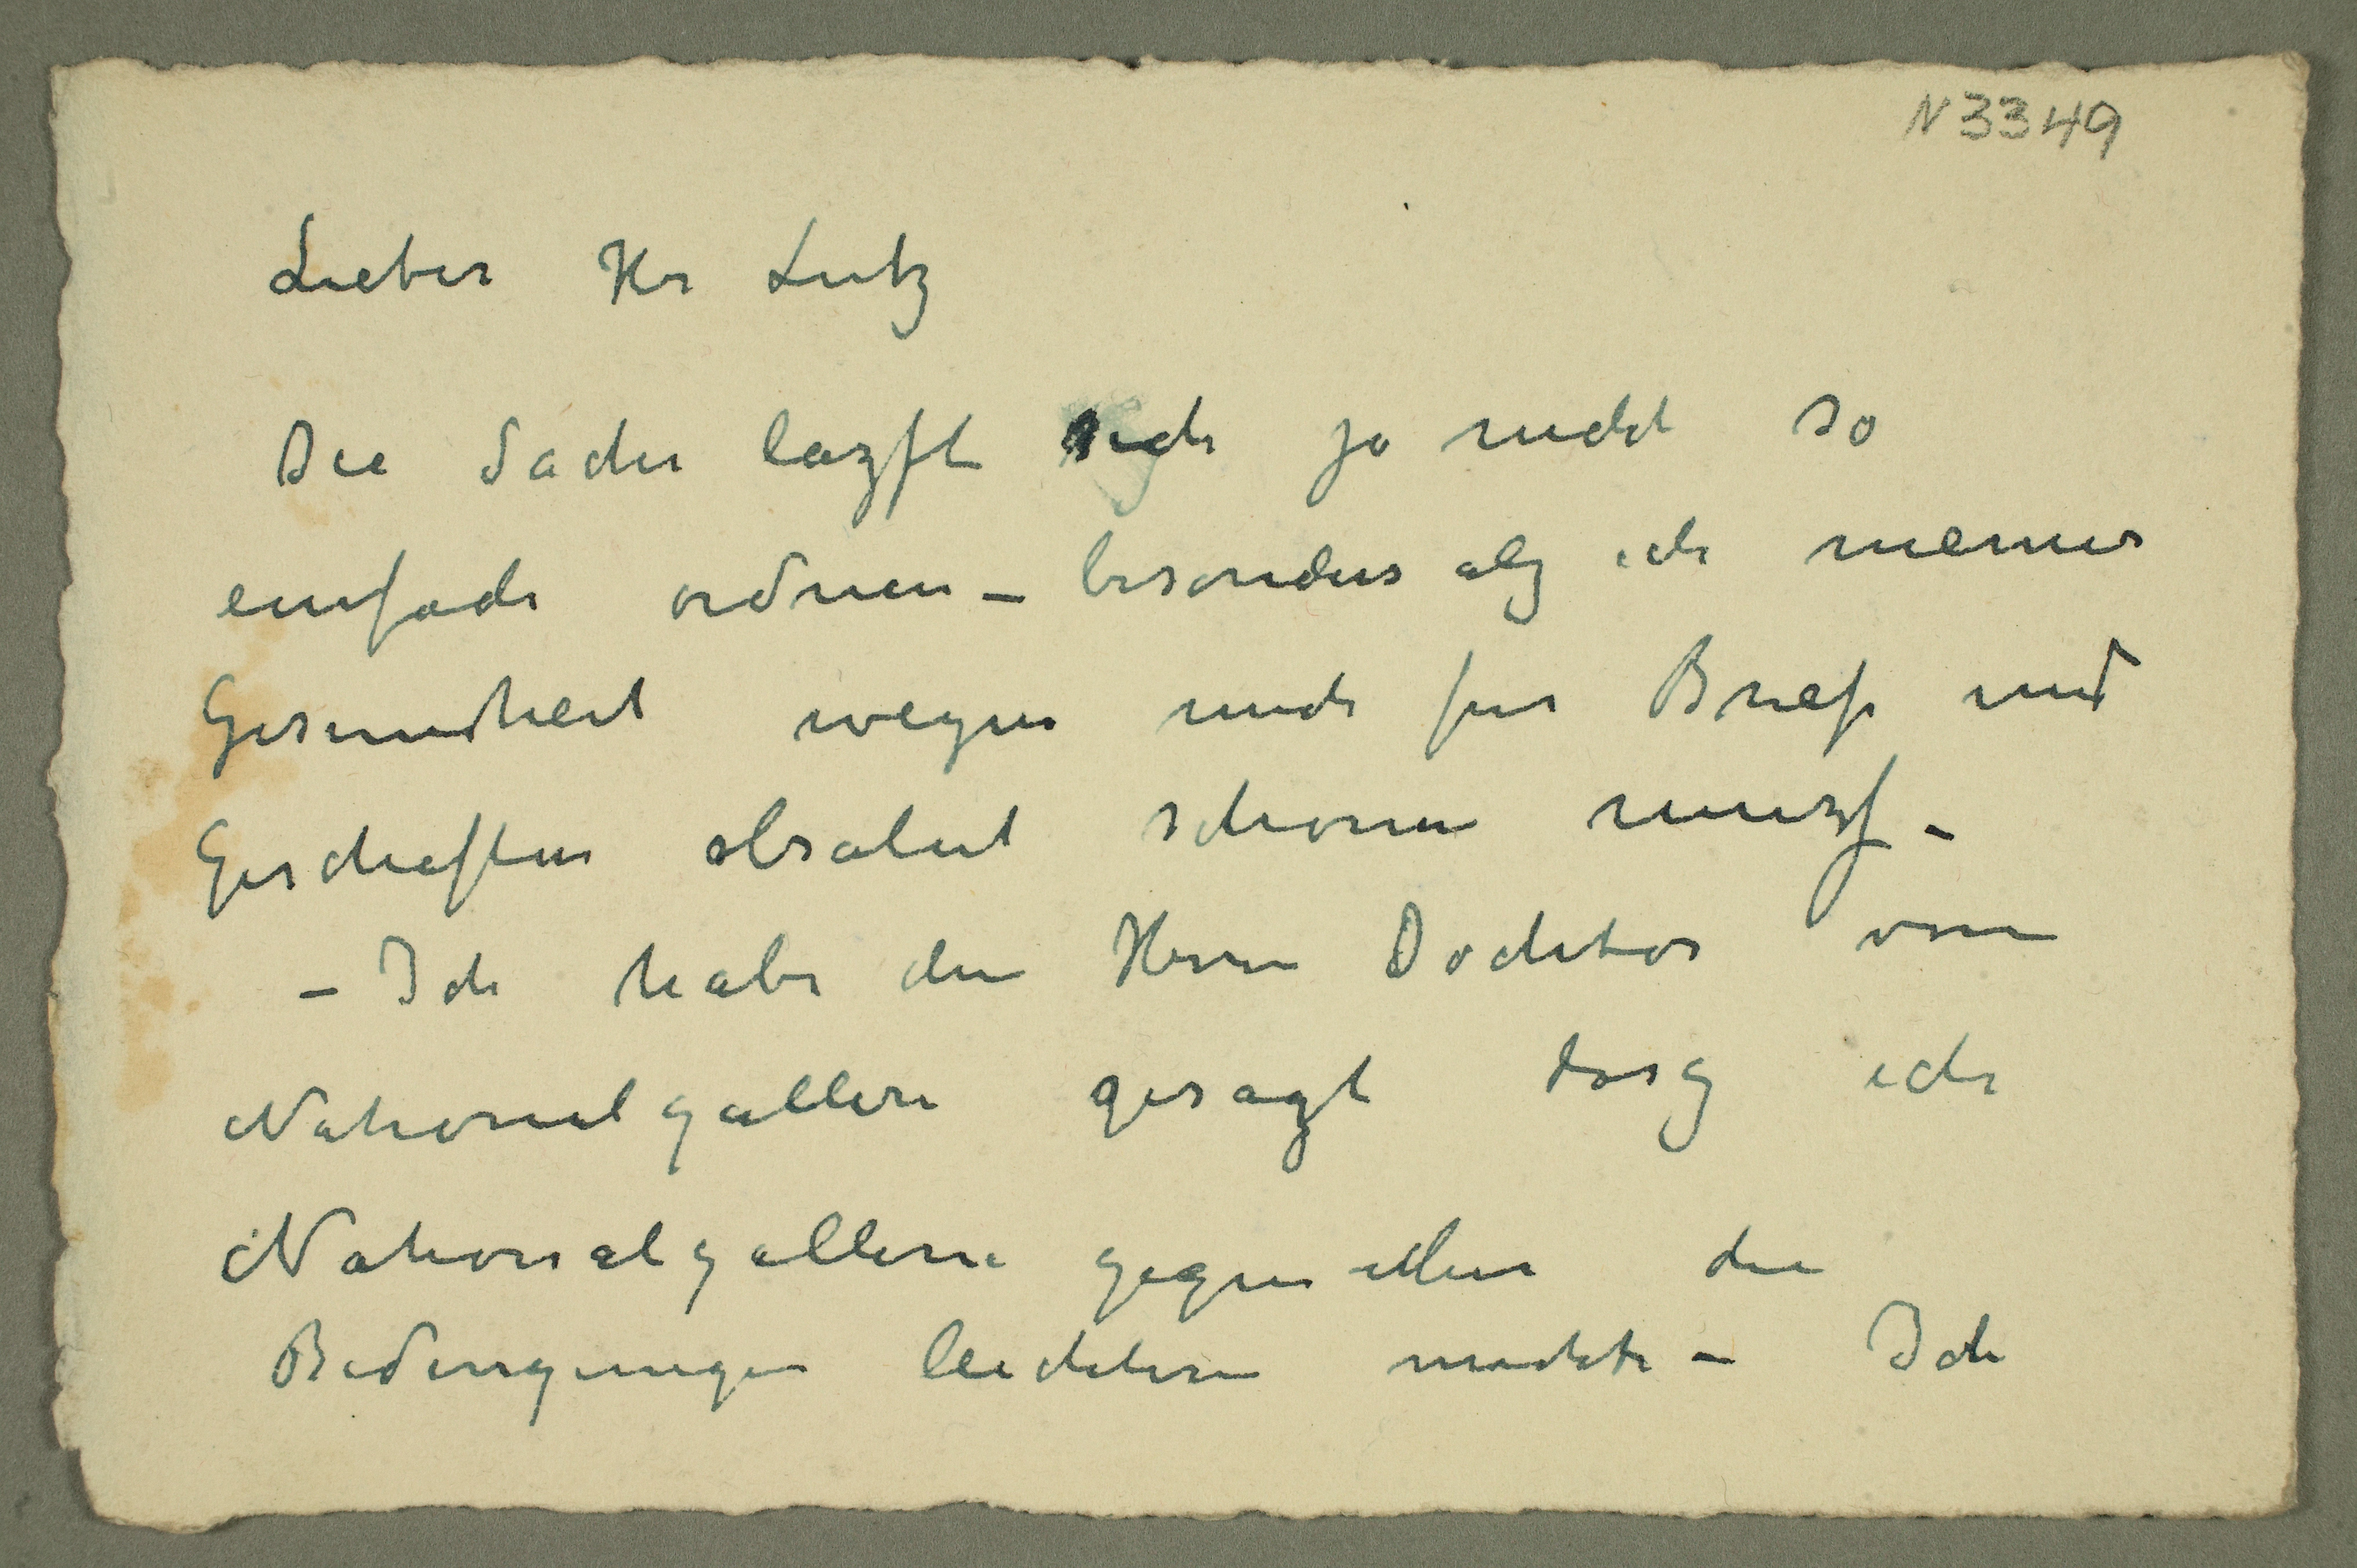 N 3349
Lieber Hr Lutz
Die Sache lazft sich ja nicht so
einfach ordnen – besonders alz ich meiner
Gesundheit wegen mich fur Brief und
Geschaften absolut schonen muszf –
– Ich habe den Herrn Dochtor vom
Nationalgallerie gesagt dasz ich
Nationalgallerie gegenüber die
Bedingungen leichtern mochte – Ich